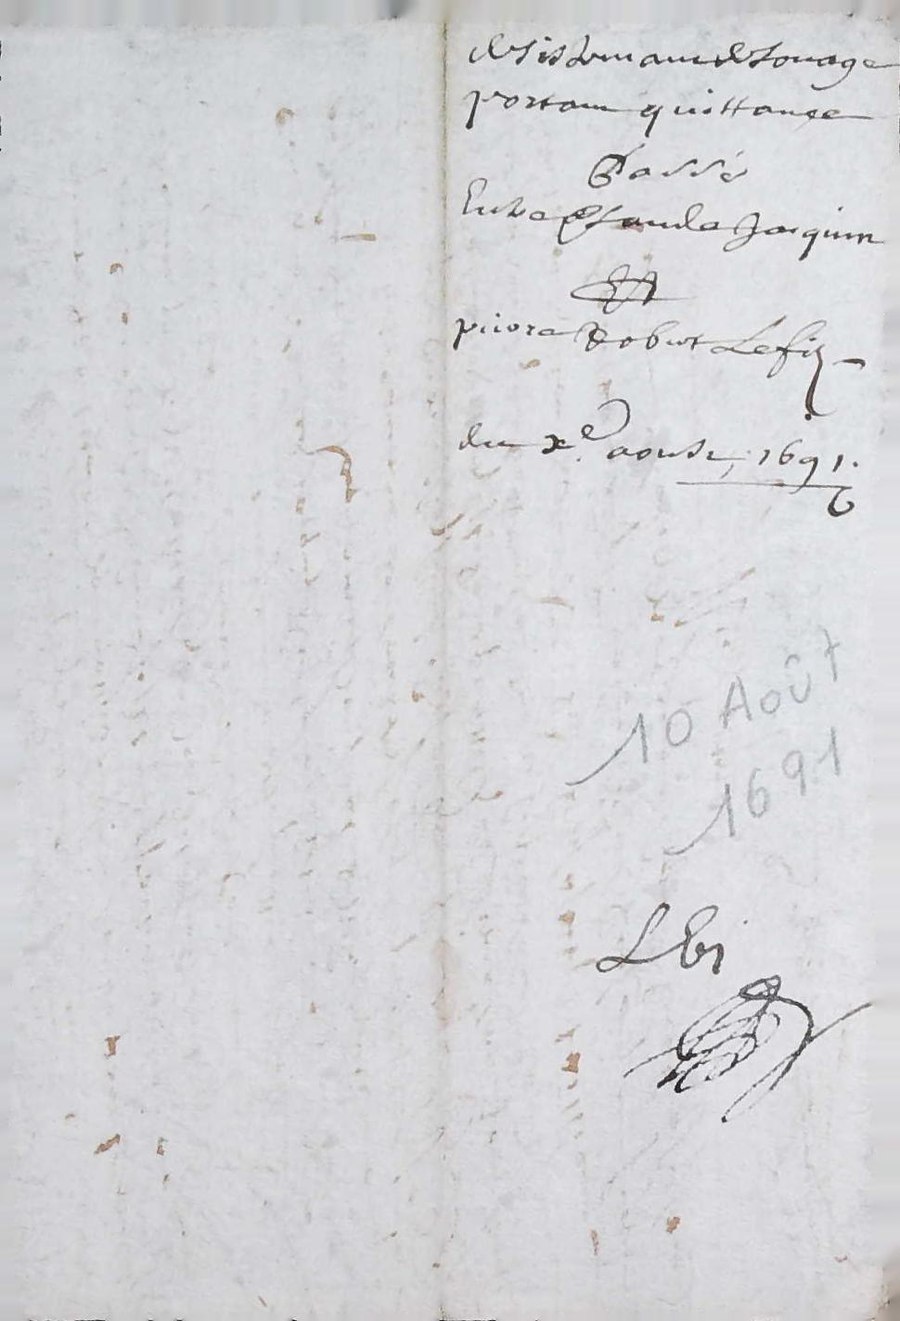 desistemant de Louage
portant quittance
Passé
Entre Claude Jacquin
Et
pierre Robert Le fiz
du xe. aoust, 1691.
10 Août
1691